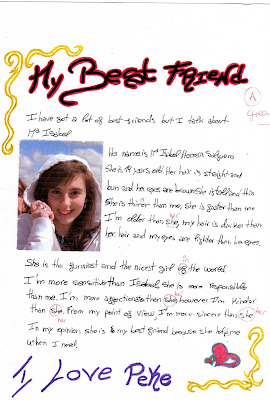 My Best Friend
A
I have got a lot of best friends but I talk about
Mª Isabel
Her name is Mª Isabel
She is years old. Her hair is straight and
and her eyes are brown. She is tall and thin
She is thiner than me, she is than me
I'm older than she, my hair is darker than
her hair and my eyes are lighter than her eyes.
her
She is the funniest and the nicest girl of the world
in
I'm more sensitive than Isabel, she is more responsible
than me. I'm more affectionate than she, however I'm kinder
her
than she. From my point of view, I'm more sincer than she
her
her
In my opinion she is my best friend because she helps me
when I need.
I Love Peke